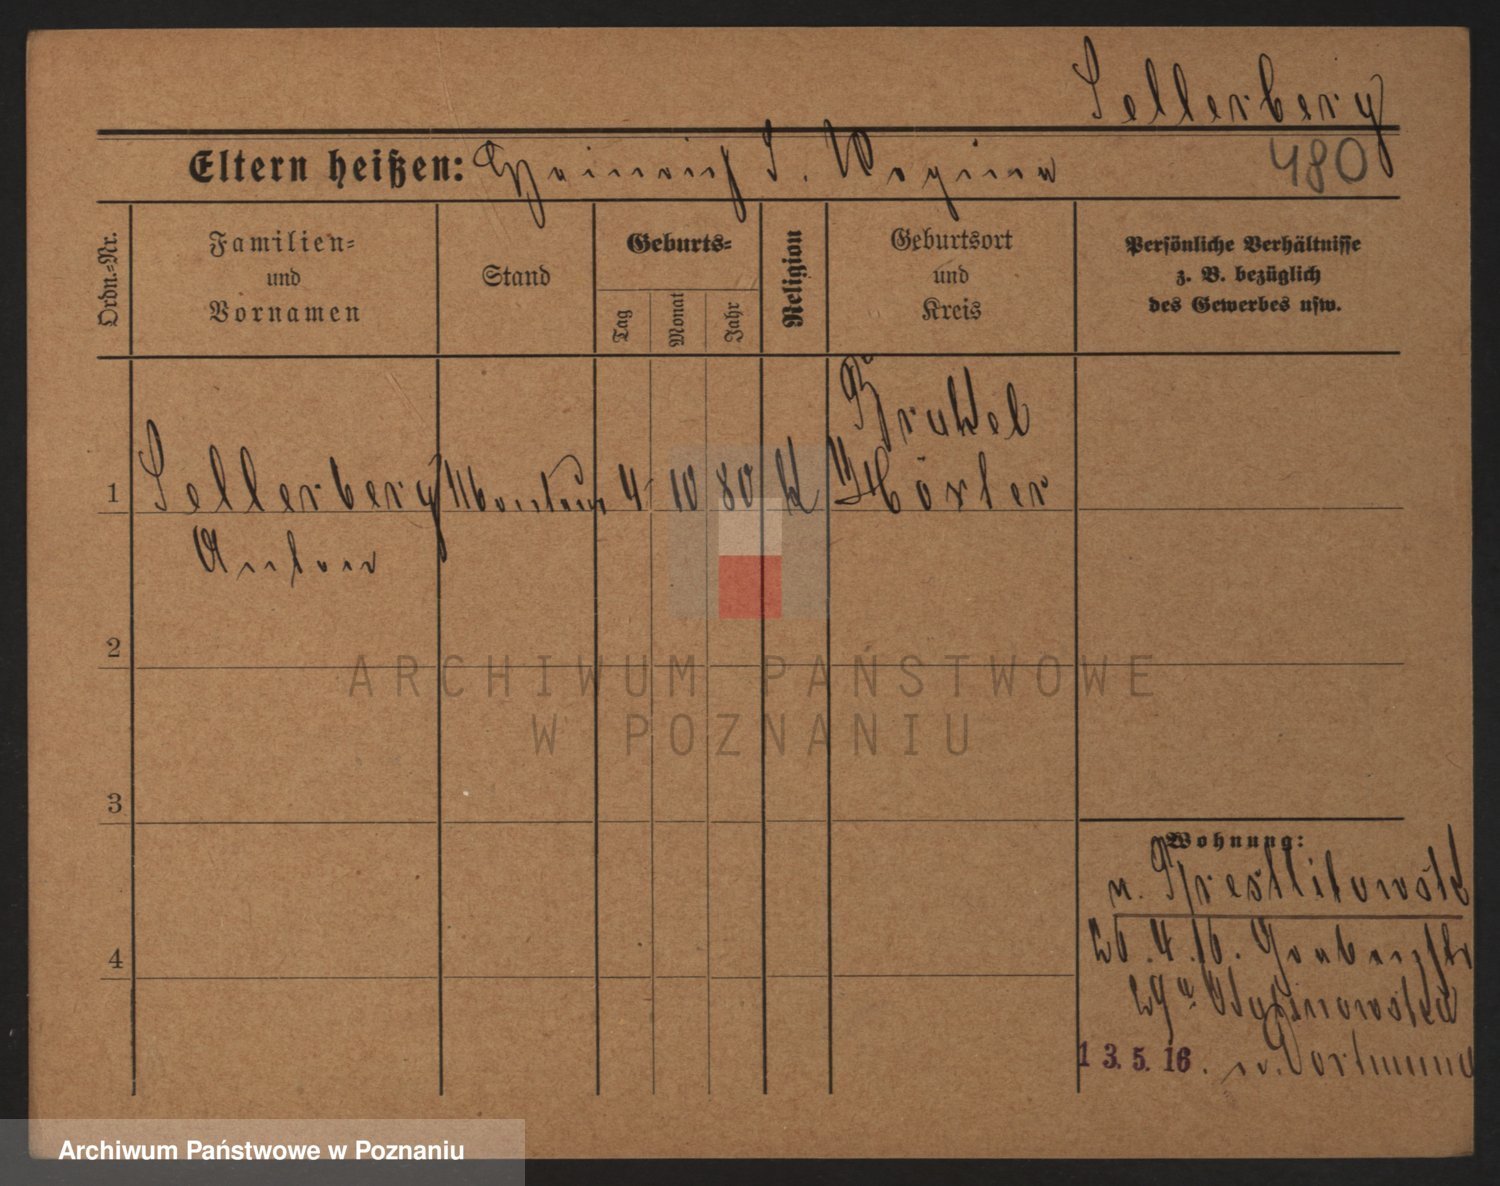 Sellerberg
Eltern heißen: Heinrich S. Regina
480
Ordn.-Nr.
Familien-
und
Vornamen
Stand
Geburts-
Tag
Monat
Jahr
Religion
Geburtsort
und
Kreis
Persönliche Verhältnisse
z. B. bezüglich
des Gewerbes usw.
Brakel
1 Sellerberg Monteur 4 10 80 K Höxter
Anton
2
3
4
Wohnung:
v. Brestlitowsk
26.4.16.
29
13.5.16. n. Dortmund
ARCHIWUM PAŃSTWOWE
W POZNANIU
Archiwum Państwowe w Poznaniu